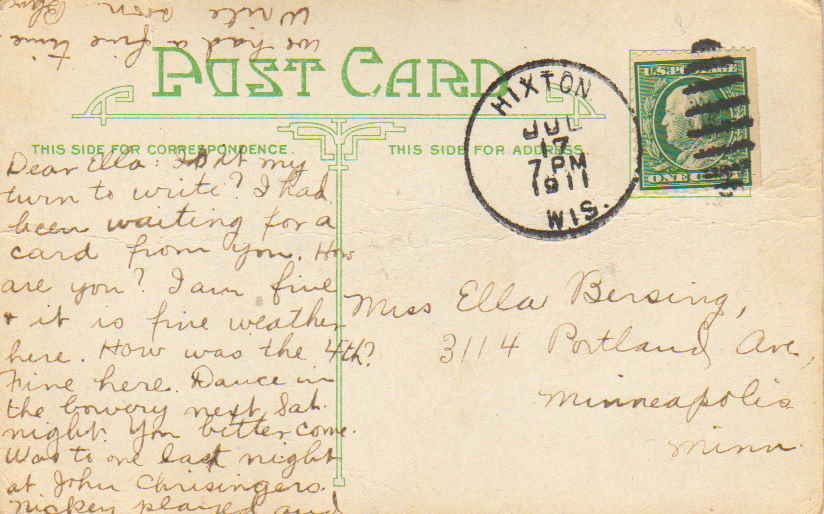 POST CARD
THIS SIDE FOR CORRESPONDENCE.
THIS SIDE FOR ADDRESS.
HIXTON
JUL
17
7 PM
1911
WIS.
U.S. POSTAGE
ONE CENT
Dear Ella: Isn't my
turn to write? I had
been waiting for a
card from you. How
are you? I am fine
& it is fine weather
here. How was the 4th?
Fine here. Dance in
the bowery next Sat.
night. You bitter come.
Was to one last night
at John Chrisingers.
Nickey played and
we had a fine time
Write soon
Miss Ella Bersing,
3114 Portland Ave,
Minneapolis
Minn.